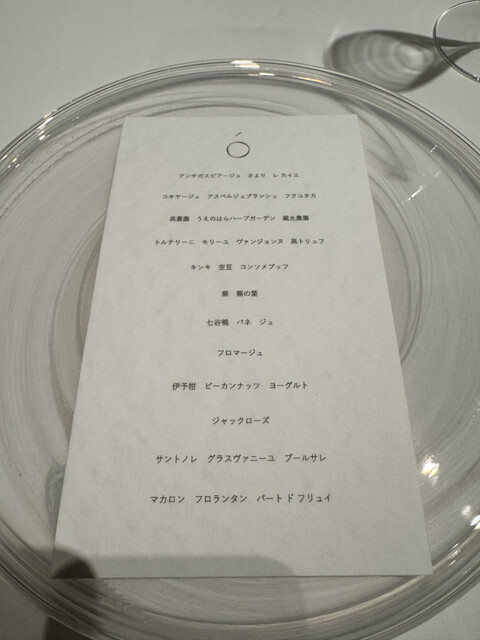 Ó
アンチガスピアージュ さより レ カイエ
コキヤージュ アスペルジュブランシュ フクユタカ
高農園 うえのはらハーブガーデン 蔵光農園
トルテリーニ モリーユ ヴァンジョンヌ 黒トリュフ
キンキ 空豆 コンソメブッフ
蕪 蕪の葉
七谷鴨 パネ ジュ
フロマージュ
伊予柑 ピーカンナッツ ヨーグルト
ジャックローズ
サントノレ グラスヴァニーユ ブールサレ
マカロン フロランタン パート ド フリュイ